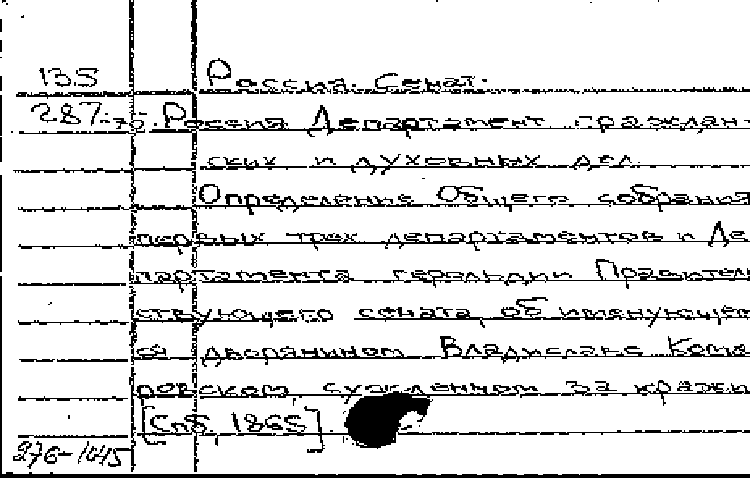 135 Россия. Сенат.
287-75. Россия Департамент граждан-
ских и духовных дел.
Определение Общего собрания
первых трех департаментов и Де-
партамента герольдии Правитель
ствующего сената, об именующем
ся дворянином Владиславе Кома
ровском, сужденном за кражи
[Спб, 1865]
276-1045